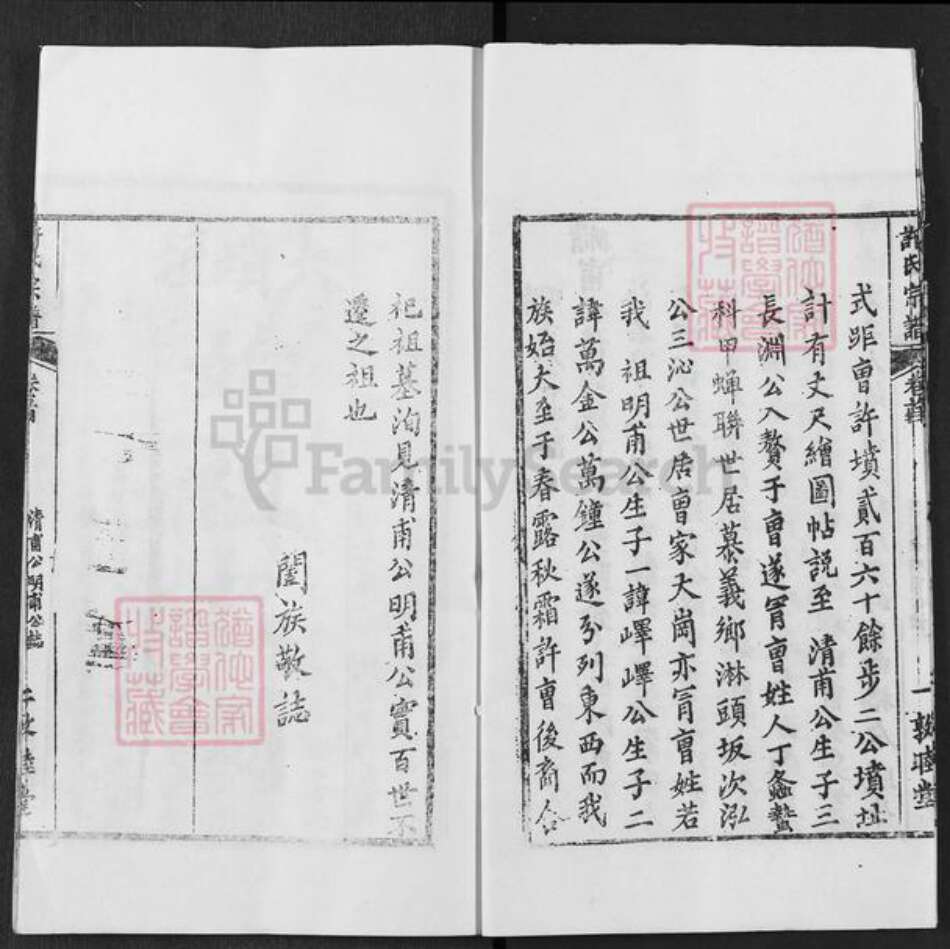 許氏宗譜
卷首
一
敦睦堂
式距曺許墳貳百六十餘步二公墳址
計有丈尺繪圖帖說至　清甫公生子三
長淵公入贅于曺遂冐曺姓人丁螽蟄
科甲蟬聯世居慕義鄉淋頭坂次泓
公三沁公世居曺家大崗亦冐曺姓若
我　祖明甫公生子一諱嶧嶧公生子二
諱萬金公萬鍾公遂分列東西而我
族始大至于春露秋霜許曺後裔合
祀祖墓洵見清甫公明甫公實百世不
遷之祖也
闔族敬誌
清甫公明甫公誌
FamilySearch